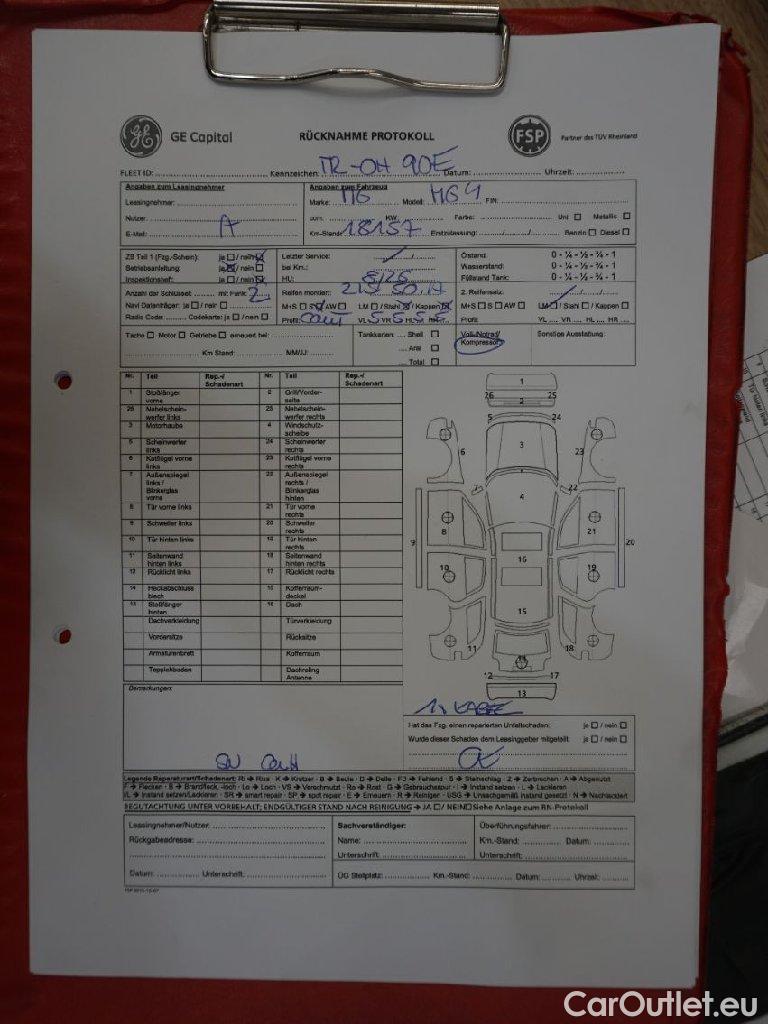 GE Capital RÜCKNAHME PROTOKOLL FSP Partner des TÜV Rheinland
FLEET ID: Kennzeichen: TR-OH 90E Datum: Uhrzeit:
Angaben zum Leasingnehmer Angaben zum Fahrzeug
Leasingnehmer: Marke: MG Modell: MG4 FIN:
Nutzer: KW: Farbe: Uni Metallic
E-Mail: A Km-Stand: 18157 Erstzulassung: Benzin Diesel
ZB Teil 1 (Fzg.-Schein): ja / nein Letzter Service: Ölstand: 0 - ¼ - ½ - ¾ - 1
Betriebsanleitung: ja / nein bei Km.: Wasserstand: 0 - ¼ - ½ - ¾ - 1
Inspektionsheft: ja / nein HU: Füllstand Tank: 0 - ¼ - ½ - ¾ - 1
Anzahl der Schlüssel: mit Funk: 2 Reifen montiert: 2. Reifensatz:
Navi Datenträger: ja / nein M+S S AW LM / Stahl / Kappen M+S S AW LM / Stahl / Kappen
Radio Code: Codekarte: ja / nein Profil: Conti VL 5 5 5 5 Profil VL VR HL HR
Tacho Motor Getriebe erneuert bei: Tankkarten: Shell Voll-/Notrad/ Sonstige Ausstattung:
Aral Kompressor
Km Stand: MM/JJ: Total
Nr. Teil Rep.-/ Schadenart Nr. Teil Rep.-/ Schadenart
1 Stoßfänger vorne 2 Grill/Vorderseite
26 Nebelscheinwerfer links 25 Nebelscheinwerfer rechts
3 Motorhaube 4 Windschutzscheibe
5 Scheinwerfer links 24 Scheinwerfer rechts
6 Kotflügel vorne links 23 Kotflügel vorne rechts
7 Außenspiegel links / Blinkerglas vorne 22 Außenspiegel rechts / Blinkerglas hinten
8 Tür vorne links 21 Tür vorne rechts
9 Schweller links 20 Schweller rechts
10 Tür hinten links 19 Tür hinten rechts
11 Seitenwand hinten links 18 Seitenwand hinten rechts
12 Rücklicht links 17 Rücklicht rechts
14 Heckabschlussblech 15 Kofferraumdeckel
13 Stoßfänger hinten 16 Dach
Dachverkleidung Türverkleidung
Vordersitze Rücksitze
Armaturenbrett Kofferraum
Teppichboden Dachreling Antenne
1
26 2 25
5 24
6 3 23
7 22
4
8 21
9 20
10 16 19
15
11 18
14
12 17
13
Bemerkungen:
1x KABEL
Hat das Fzg. einen reparierten Unfallschaden: ja / nein
Wurde dieser Schaden dem Leasinggeber mitgeteilt: ja / nein
Legende Reparaturart/Schadenart: Ri → Riss K → Kratzer B → Beule D → Delle FJ → Fehlend S → Steinschlag Z → Zerbrochen A → Abgenutzt
F → Flecken B → Brandfleck, -loch Lo → Loch VS → Verschmutzt Ro → Rost G → Gebrauchsspur I → Instand setzen L → Lackieren
I/L → Instand setzen/Lackieren SR → smart repair SP → spot repair E → Erneuern R → Reinigen USG → Unsachgemäß instand gesetzt N → Nachlackiert
BEGUTACHTUNG UNTER VORBEHALT; ENDGÜLTIGER STAND NACH REINIGUNG → JA / NEIN Siehe Anlage zum RN-Protokoll
Leasingnehmer/Nutzer: Sachverständiger: Überführungsfahrer:
Rückgabeadresse: Name: Km.-Stand: Datum:
Unterschrift: Unterschrift:
Datum: Unterschrift: ÜG Stellplatz: Km.-Stand: Datum: Uhrzeit:
CarOutlet.eu